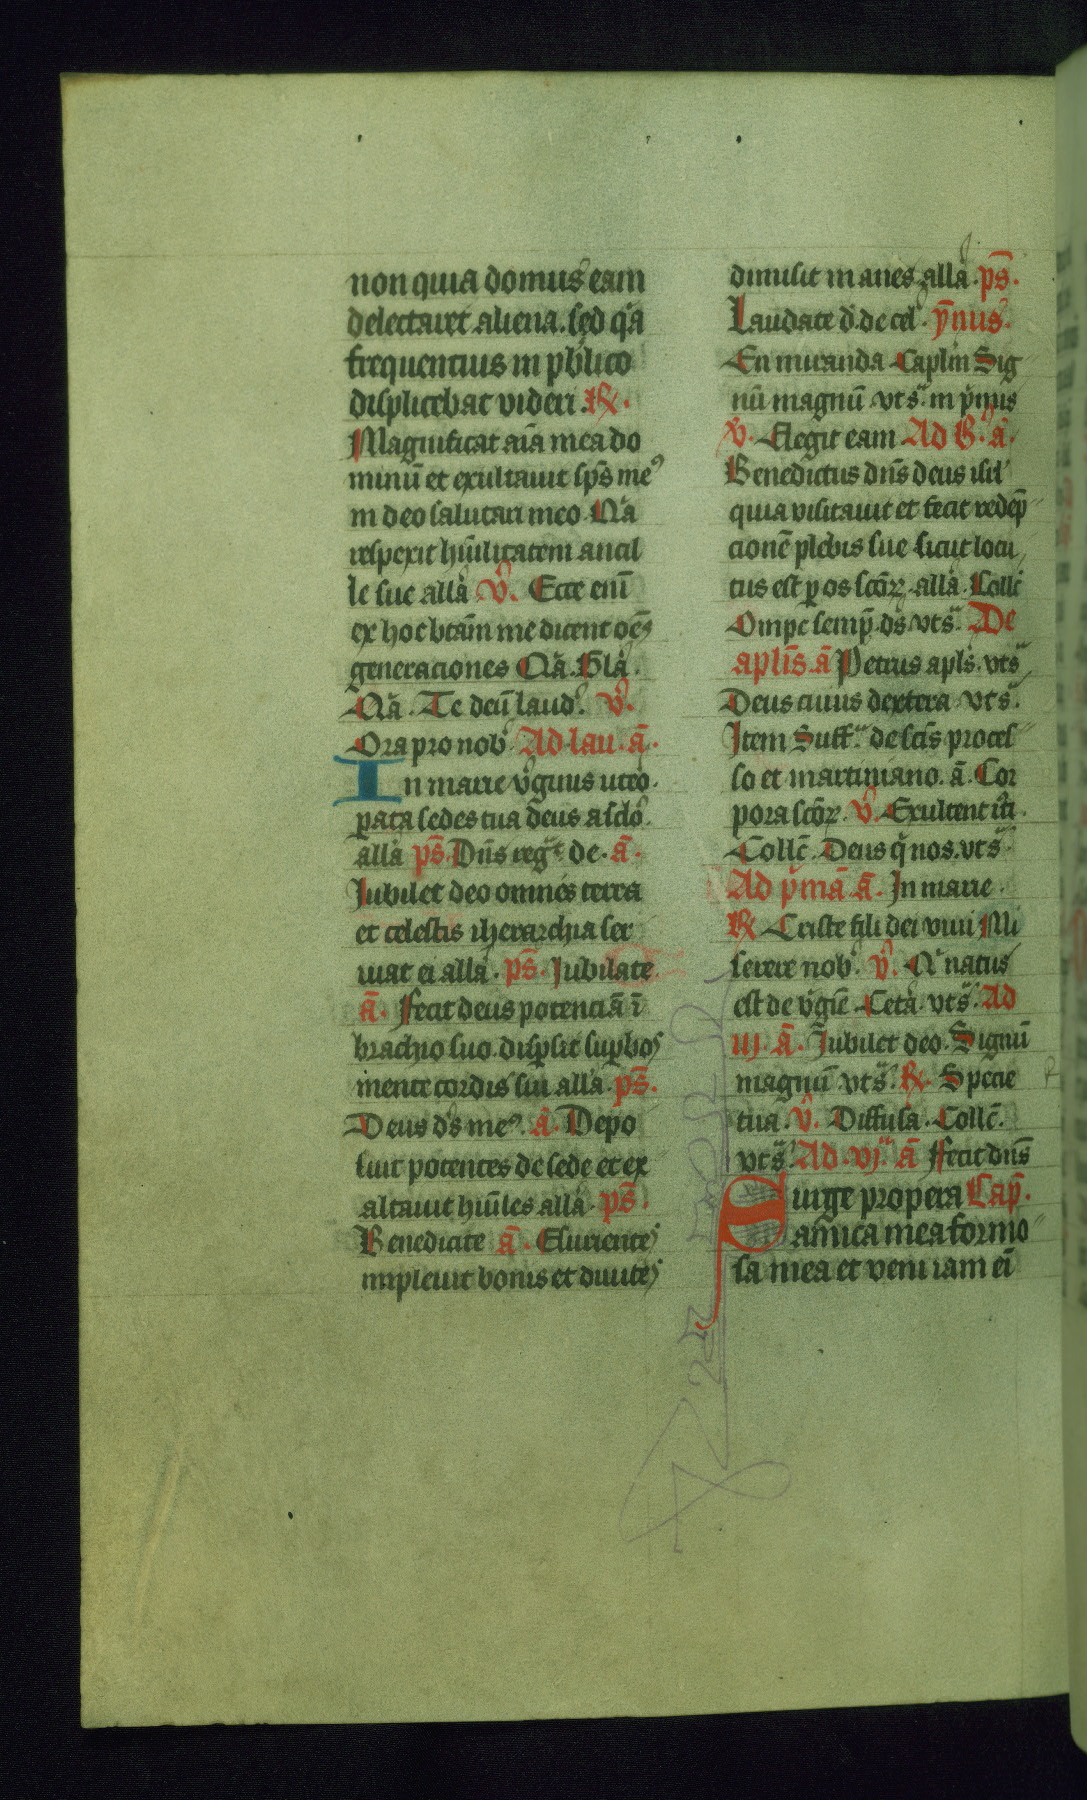 non quia domus eam
delectaret aliena. sed q̾a
frequentius in pb̾lico
displicebat videri. ℟.
Magnificat aīa mea do
minū et exultauit sp̄s me⁹
in deo salutari meo. Q̾a
respexit hūilitatem ancil
le sue all̾a ℣. Ecce enī
ex hoc btām me dicent oēs
generaciones Q̾a. Gl̾a.
Q̾a. Te deū laud̾. ℣.
Ora pro nob̾. Ad lau. ā.
In marie v̾ginis utero.
ꝑata sedes tua deus a sclo̾
all̾a ps̄. Dn̄s reg̾ᵗ de. ā.
Iubilet deo omnes terra
et celestis iherarchia ser
uiat ei all̾a. ps̄. Iubilate
ā. ffecit deus potenciā ī
brachio suo. disꝑsit suꝑbos
mente cordis sui all̾a. ps̄.
Deus ds̄ me⁹. ā. Depo
suit potentes de sede et ex
altauit hūīles all̾a. ps̄.
Benedicite ā. Esurientes
impleuit bonis et diuites
dimisit inanes all̾a. ps̄.
Laudate d̾. de cel̾. ȳnus.
En miranda Caplm̄ Sig
nū magnū vts̾. in p̾mis
℣. Elegit eam Ad B̾. ā.
Benedictus dn̄s deus isrl̾
quia visitauit et fecit redēp
cionē plebis sue sicut locu
tus est ꝑ os scōꝝ. all̾a. Collc̄
Ompc semꝑ ds̄ vts̾. De
apl̄is. ā Petrus apls̄. vts̾
Deus cuius dextera vts̾.
Item Suff̾. de scīs proces
so et martiniano. ā. Cor
pora scōꝝ. ℣. Exultent iu̾ti
Collc̄. Deus q̾ nos. vts̾.
Ad p̾mā ā. In marie.
℟ Criste fili dei viui Mi
serere nob̾. ℣. Q̾ natus
est de v̾gīe. Cet̾a. vts̾. Ad
iij. ā. Iubilet deo. Signū
magnū vts̾. ℟. Specie
tua. ℣. Diffusa. Collc̄.
vts̾. Ad. vj. ā ffecit dn̄s
Surge propera Cap̄.
amica mea formo
sa mea et veni iam eī